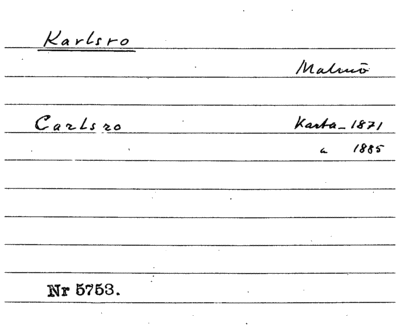 Karlsro
Malmö
Carlsro Karta 1871
" 1885
Nr 5753.